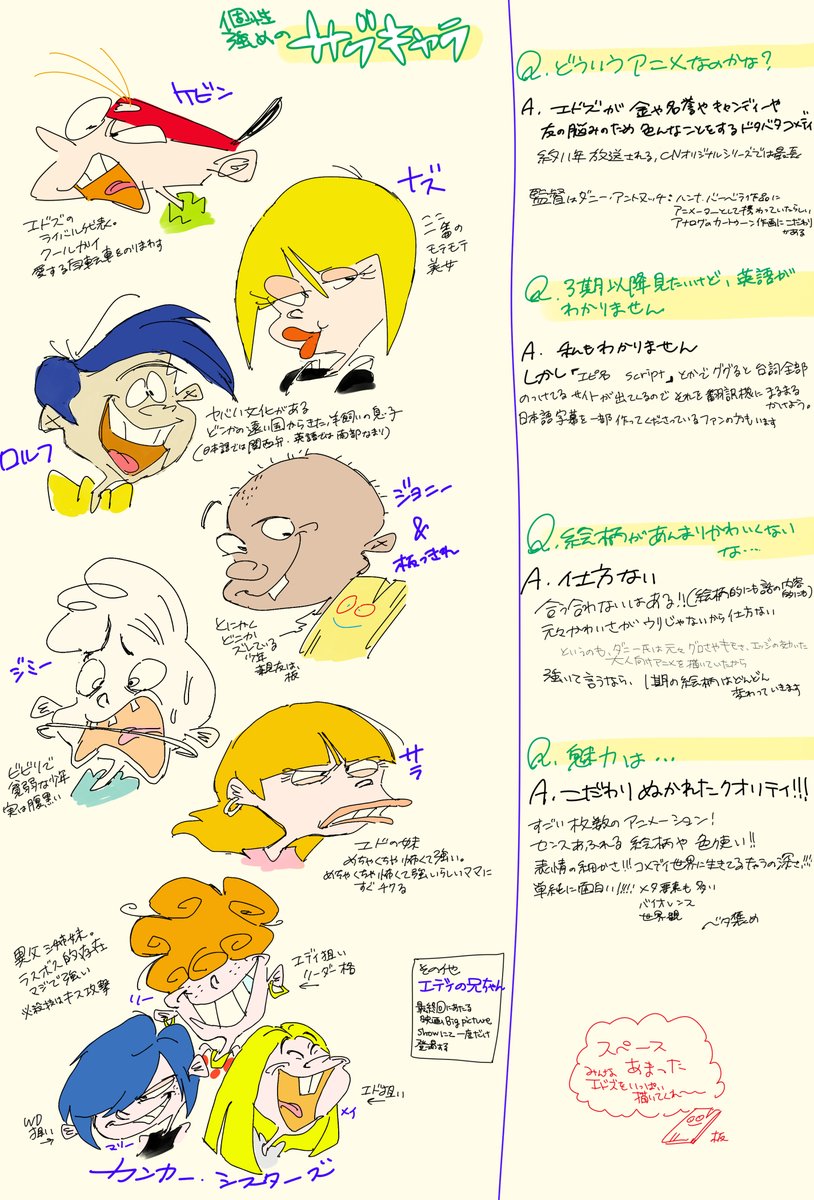 個性
強めの
サブキャラ
ケビン
エドズの
ライバル代表。
クールガイ
愛する自転車をのりまわす
ナズ
ここ
一番の
モテモテ
美女
ロルフ
ヤバい文化がある
どこかの遠い国からきた羊飼いの息子
(日本語では関西弁・英語では南部なまり)
ジョニー
&
板っきれ
とにかく
どこか
ズレている
少年
親友は、
板
ジミー
ビビリで
貧弱な少年
実は腹黒い
サラ
エドの妹
めちゃくちゃ怖くて強い。
めちゃくちゃ怖くて強いらしいママに
すぐチクる
異父三姉妹。
ラスボス的存在
マジで強い
必殺技はキス攻撃
リー
エディ狙い
リーダー格
WD
狙い
マリー
メイ
エド狙い
カンカー・シスターズ
その他
エディの兄ちゃん
最終回にあたる
映画、Big picture
showにて一度だけ
登場する
Q. どういうアニメなのかな?
A. エドズが金や名誉やキャンディーや
友の悩みのため 色んなことをするドタバタコメディ
約11年放送される, CNオリジナルシリーズでは最長
監督はダニー・アントヌッチ:ハンナ・バーベラ作品に
アニメーターとして携わっていたらしい
アナログのカートゥーン作画にこだわり
がある
Q. 3期以降見たいけど、英語が
わかりません
A. 私もわかりません
しかし「エピ名 script」とかでググると台詞全部
のっけてるサイトが出てくるので それを翻訳機にまるまる
かけよう。
日本語字幕を一部作ってくださっているファンの方もいます
Q. 絵柄があんまりかわいくない
な…
A. 仕方ない
合う合わないはある!!(絵柄的にも話の内容
的にも)
元々かわいさがウリじゃないから仕方ない
というのも、ダニー氏は元々グロさやキモさ、エッジの効いた
大人向けアニメを描いていたから
強いて言うなら、1期の絵柄はどんどん
変わっていきます
Q. 魅力は…
A. こだわりぬかれたクオリティ!!!
すごい枚数のアニメーション!
センスあふれる絵柄や色使い!!
表情の細かさ!!!コメディ世界に生きてるキャラの深さ!!!
単純に面白い!!!! メタ要素も多い
バイオレンス
世界観
ベタ褒め
スペース
あまった
みんな
エドズをいっぱい
描いてくれ〜〜
板